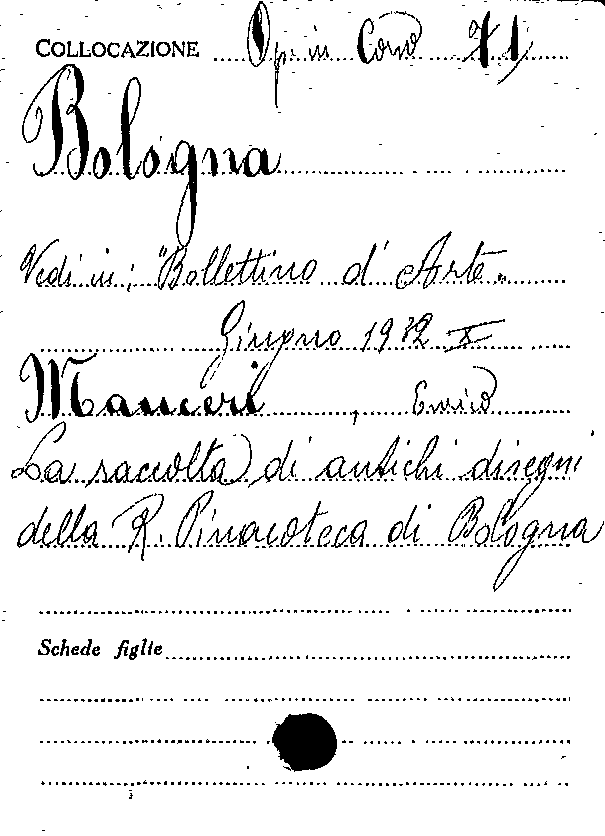 COLLOCAZIONE Op. in Corso
Bologna
Vedi in: "Bollettino d'Arte"
Giugno 1932 X
Manceri, Enrico
La raccolta di antichi disegni
della R. Pinacoteca di Bologna
Schede figlie